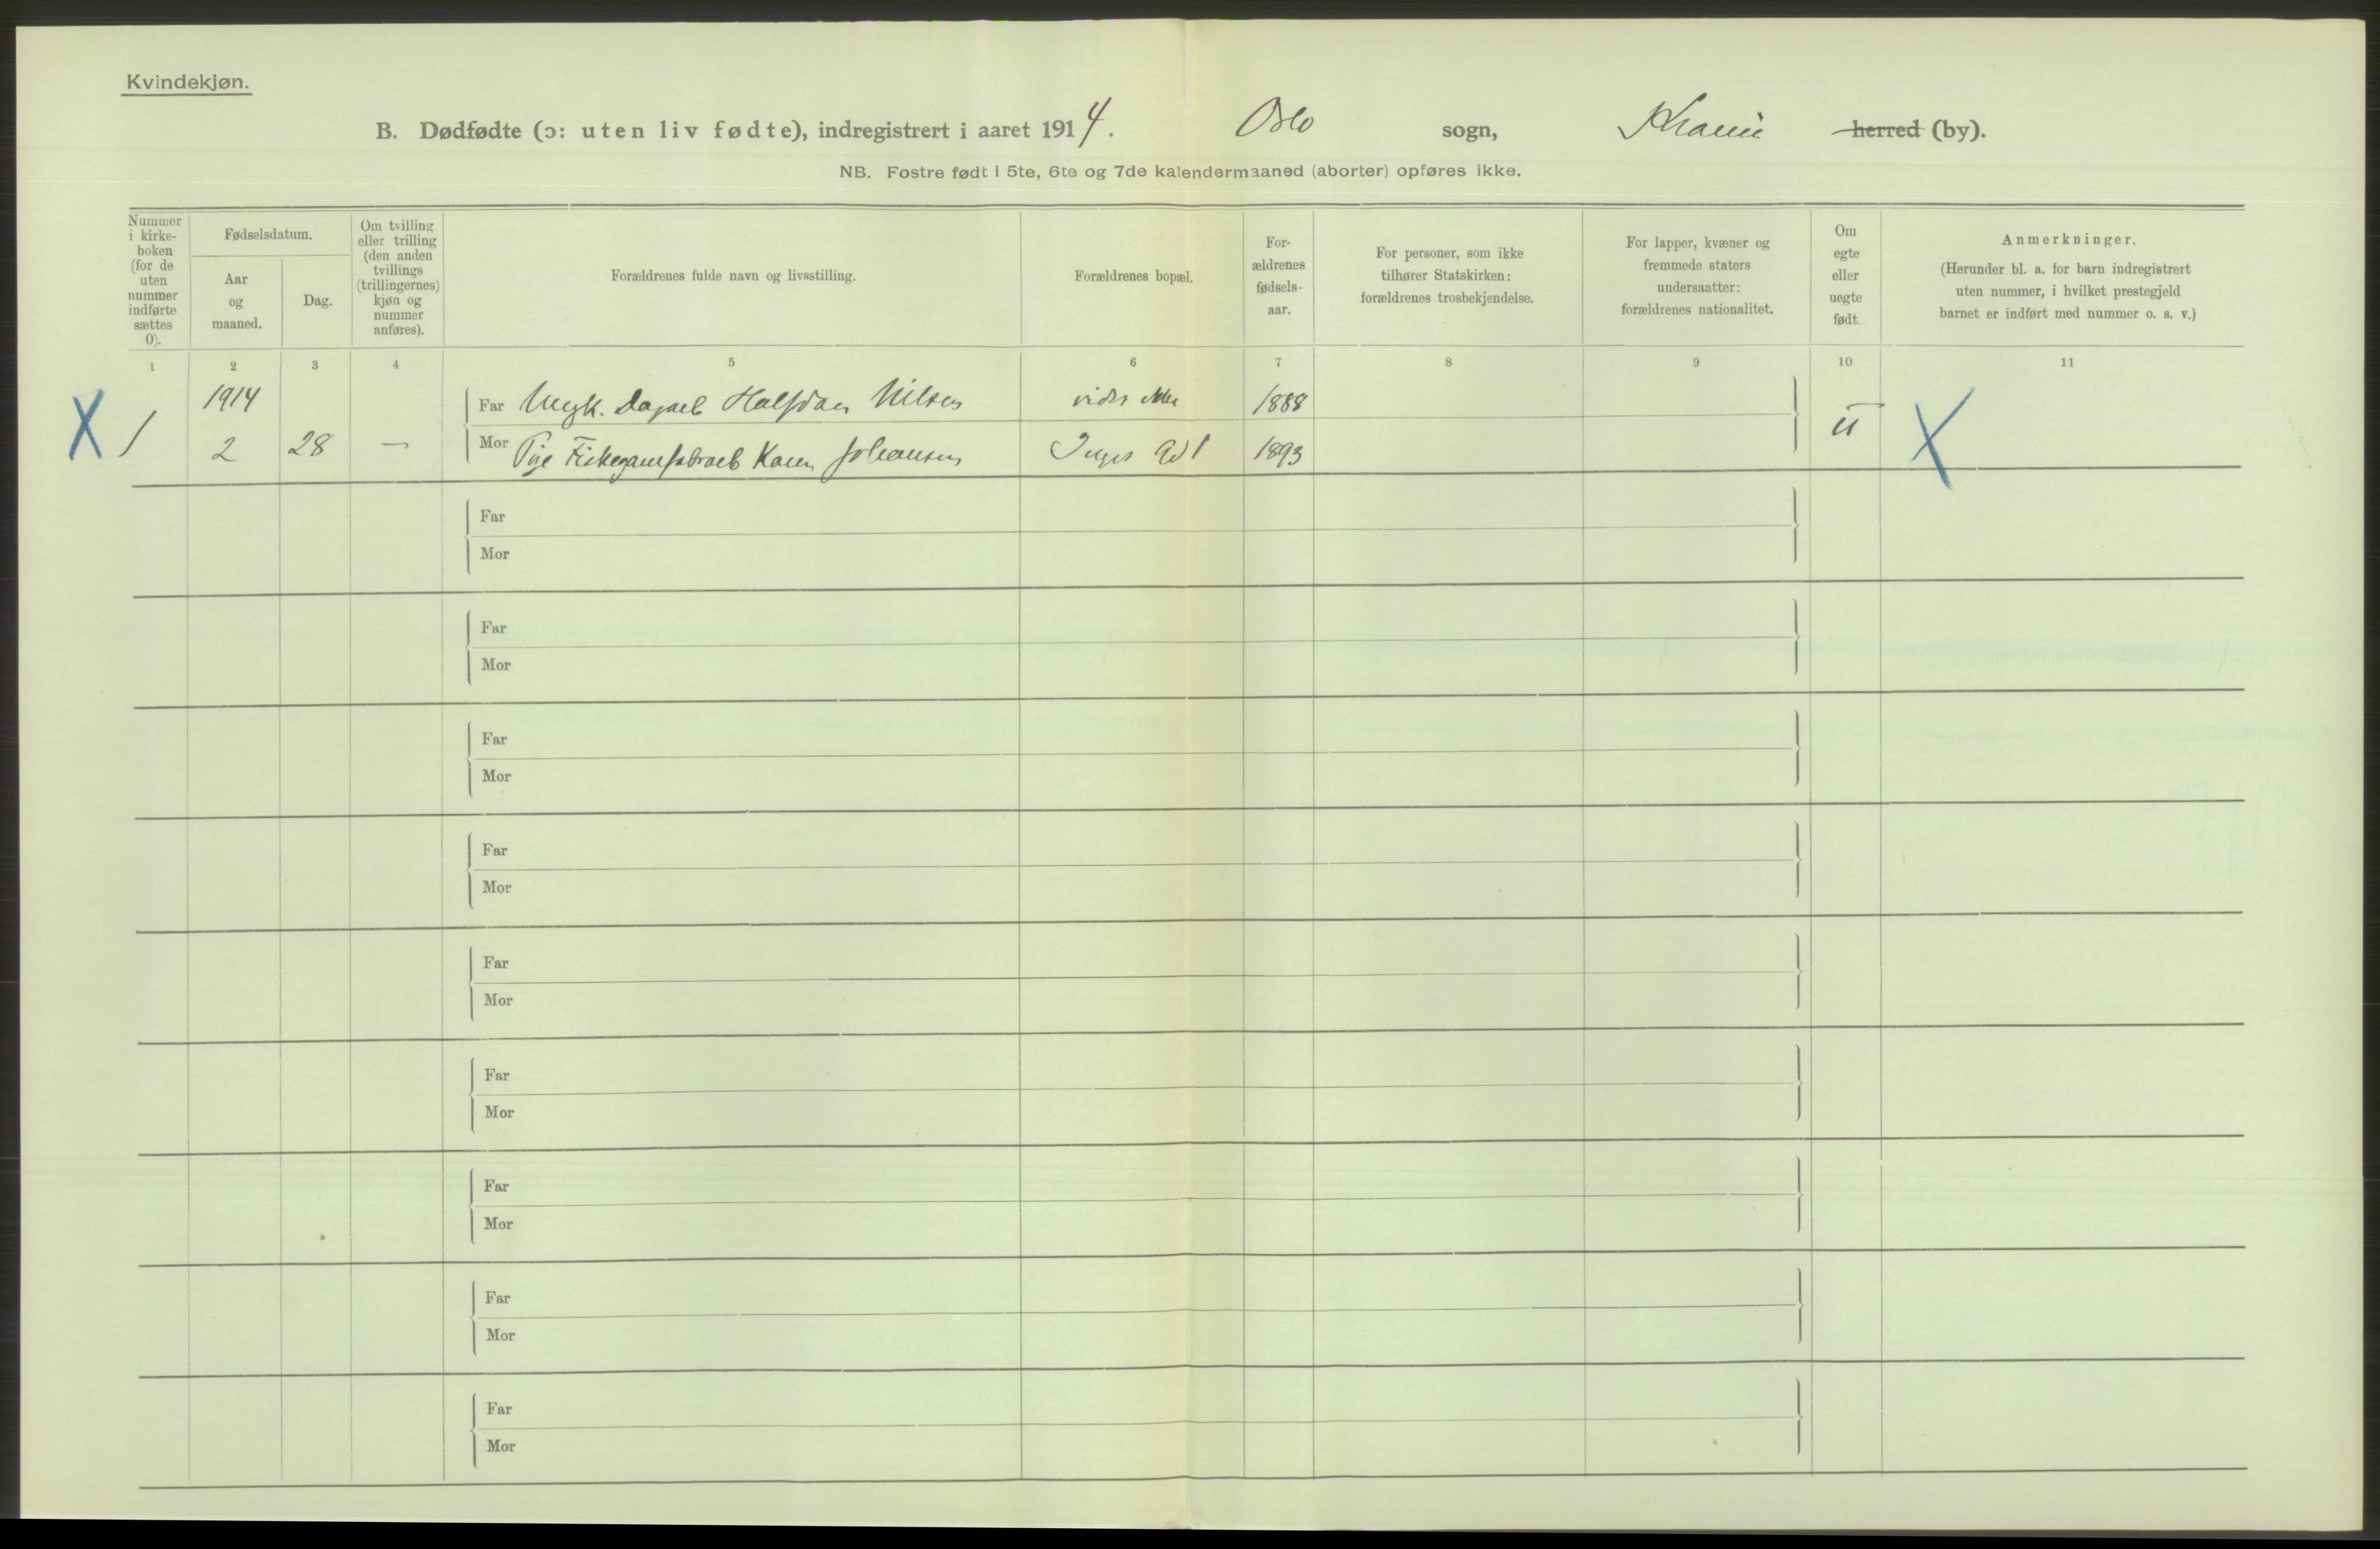 Kvindekjøn.
B. Dødfødte (ɔ: uten liv fødte), indregistrert i aaret 1914. Oslo sogn, Krania herred (by).
NB. Fostre født i 5te, 6te og 7de kalendermaaned (aborter) opføres ikke.
Nummer
i kirke-
boken
(for de
uten
nummer
indførte
sættes
0).
Fødselsdatum.
Aar
og
maaned.
Dag.
Om tvilling
eller trilling
(den anden
tvillings
(trillingernes)
kjøn og
nummer
anføres).
Forældrenes fulde navn og livsstilling.
Forældrenes bopæl.
For-
ældrenes
fødsels-
aar.
For personer, som ikke
tilhører Statskirken:
forældrenes trosbekjendelse.
For lapper, kvæner og
fremmede staters
undersaatter:
forældrenes nationalitet.
Om
egte
eller
uegte
født.
Anmerkninger.
(Herunder bl. a. for barn indregistrert
uten nummer, i hvilket prestegjeld
barnet er indført med nummer o. s. v.)
1 2 3 4 5 6 7 8 9 10 11
X 1 1914 2 28 —
Far Ungk. Dagarb Halfdan Nilsen vides ikke 1888
Mor Pige Karen Johansen Inges Gd 1 1893
u X
Far
Mor
Far
Mor
Far
Mor
Far
Mor
Far
Mor
Far
Mor
Far
Mor
Far
Mor
Far
Mor